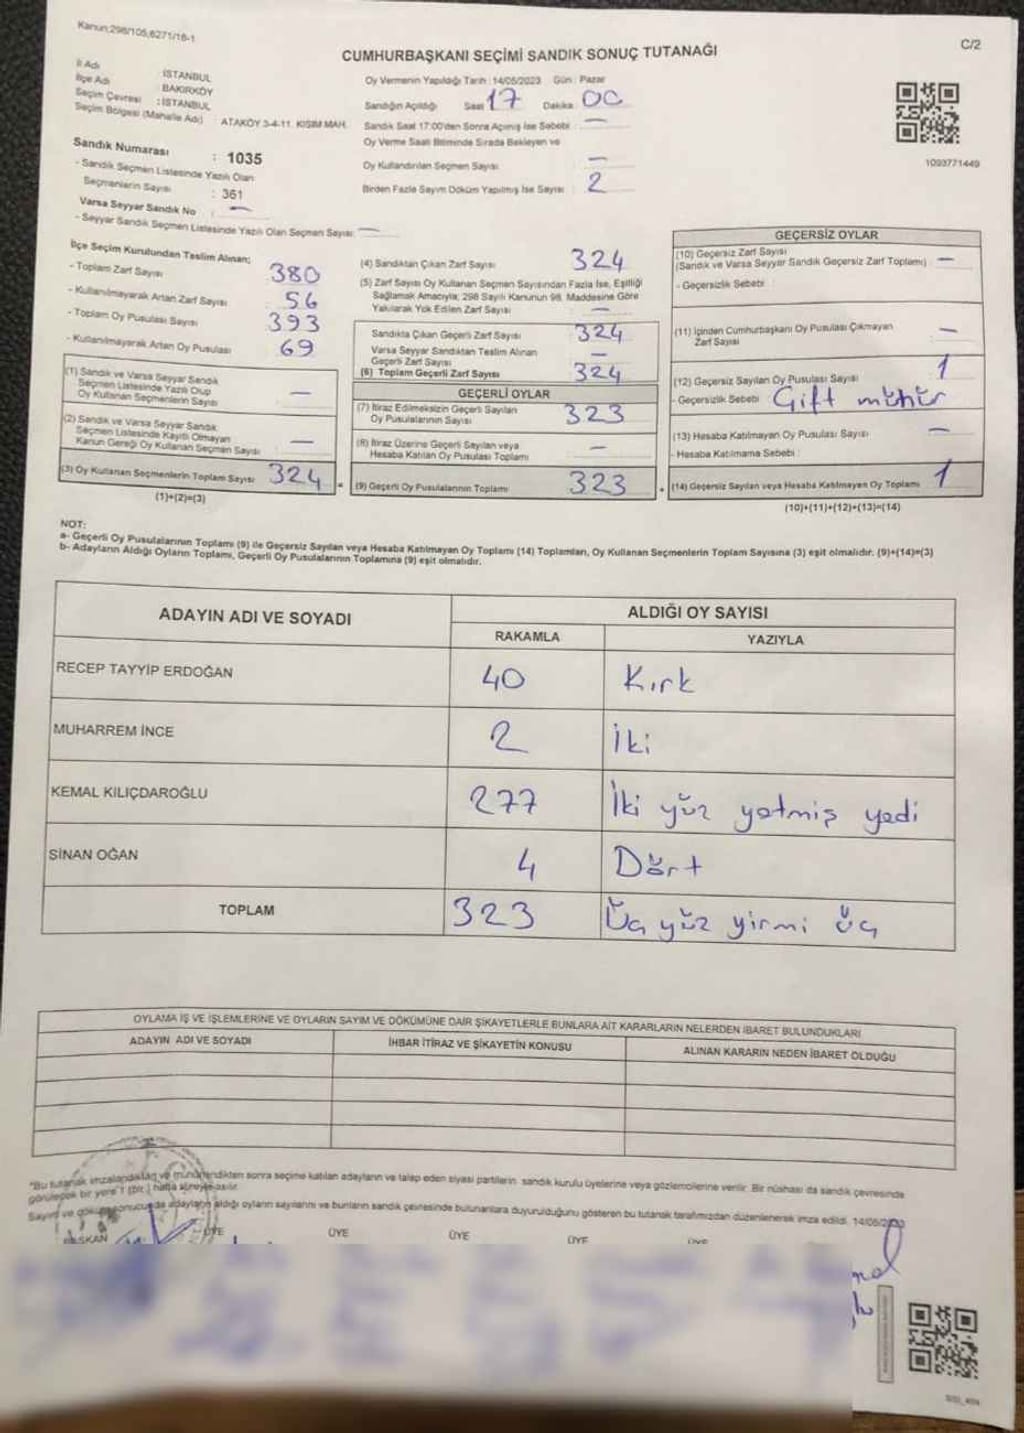 Kanun;298/105,6271/18-1
C/2
CUMHURBAŞKANI SEÇİMİ SANDIK SONUÇ TUTANAĞI
İl Adı
İSTANBUL
İlçe Adı
BAKIRKÖY
Seçim Çevresi : İSTANBUL
Seçim Bölgesi (Mahalle Adı) ATAKÖY 3-4-11. KISIM MAH.
Sandık Numarası : 1035
- Sandık Seçmen Listesinde Yazılı Olan
Seçmenlerin Sayısı : 361
Varsa Seyyar Sandık No : —
- Seyyar Sandık Seçmen Listesinde Yazılı Olan Seçmen Sayısı: —
Oy Vermenin Yapıldığı Tarih : 14/05/2023 Gün : Pazar
Sandığın Açıldığı Saat 17 Dakika 00
Sandık Saat 17:00'den Sonra Açılmış İse Sebebi : —
Oy Verme Saati Bitiminde Sırada Bekleyen ve
Oy Kullandırılan Seçmen Sayısı : —
Birden Fazla Sayım Döküm Yapılmış İse Sayısı : 2
1093771449
İlçe Seçim Kurulundan Teslim Alınan;
- Toplam Zarf Sayısı 380
- Kullanılmayarak Artan Zarf Sayısı 56
- Toplam Oy Pusulası Sayısı 393
- Kullanılmayarak Artan Oy Pusulası 69
(1) Sandık ve Varsa Seyyar Sandık
Seçmen Listesinde Yazılı Olup
Oy Kullanan Seçmenlerin Sayısı —
(2) Sandık ve Varsa Seyyar Sandık
Seçmen Listesinde Kayıtlı Olmayan
Kanun Gereği Oy Kullanan Seçmen Sayısı —
(3) Oy Kullanan Seçmenlerin Toplam Sayısı 324
(1)+(2)=(3)
(4) Sandıktan Çıkan Zarf Sayısı 324
(5) Zarf Sayısı Oy Kullanan Seçmen Sayısından Fazla İse, Eşitliği
Sağlamak Amacıyla; 298 Sayılı Kanunun 98. Maddesine Göre
Yakılarak Yok Edilen Zarf Sayısı —
Sandıkta Çıkan Geçerli Zarf Sayısı 324
Varsa Seyyar Sandıktan Teslim Alınan
Geçerli Zarf Sayısı —
(6) Toplam Geçerli Zarf Sayısı 324
GEÇERLİ OYLAR
(7) İtiraz Edilmeksizin Geçerli Sayılan
Oy Pusulalarının Sayısı 323
(8) İtiraz Üzerine Geçerli Sayılan veya
Hesaba Katılan Oy Pusulası Toplamı —
(9) Geçerli Oy Pusulalarının Toplamı 323
GEÇERSİZ OYLAR
(10) Geçersiz Zarf Sayısı
(Sandık ve Varsa Seyyar Sandık Geçersiz Zarf Toplamı) —
- Geçersizlik Sebebi :
(11) İçinden Cumhurbaşkanı Oy Pusulası Çıkmayan
Zarf Sayısı —
(12) Geçersiz Sayılan Oy Pusulası Sayısı 1
- Geçersizlik Sebebi : Çift mühür
(13) Hesaba Katılmayan Oy Pusulası Sayısı —
- Hesaba Katılmama Sebebi :
(14) Geçersiz Sayılan veya Hesaba Katılmayan Oy Toplamı 1
(10)+(11)+(12)+(13)=(14)
NOT:
a- Geçerli Oy Pusulalarının Toplamı (9) ile Geçersiz Sayılan veya Hesaba Katılmayan Oy Toplamı (14) Toplamları, Oy Kullanan Seçmenlerin Toplam Sayısına (3) eşit olmalıdır. (9)+(14)=(3)
b- Adayların Aldığı Oyların Toplamı, Geçerli Oy Pusulalarının Toplamına (9) eşit olmalıdır.
ADAYIN ADI VE SOYADI
ALDIĞI OY SAYISI
RAKAMLA YAZIYLA
RECEP TAYYİP ERDOĞAN 40 Kırk
MUHARREM İNCE 2 İki
KEMAL KILIÇDAROĞLU 277 İki yüz yetmiş yedi
SİNAN OĞAN 4 Dört
TOPLAM 323 Üç yüz yirmi üç
OYLAMA İŞ VE İŞLEMLERİNE VE OYLARIN SAYIM VE DÖKÜMÜNE DAİR ŞİKAYETLERLE BUNLARA AİT KARARLARIN NELERDEN İBARET BULUNDUKLARI
ADAYIN ADI VE SOYADI İHBAR İTİRAZ VE ŞİKAYETİN KONUSU ALINAN KARARIN NEDEN İBARET OLDUĞU
"Bu tutanak imzalandıktan ve mühürlendikten sonra seçime katılan adayların ve talep eden siyasi partilerin sandık kurulu üyelerine veya gözlemcilerine verilir. Bir nüshası da sandık çevresinde
görülecek bir yere 1 (bir) hafta süreyle asılır.
Sayım ve döküm sonucunda adayların aldığı oyların sayılarını ve bunların sandık çevresinde bulunanlara duyurulduğunu gösteren bu tutanak tarafımızdan düzenlenerek imza edildi. 14/05/2023
BAŞKAN ÜYE ÜYE ÜYE ÜYE ÜYE